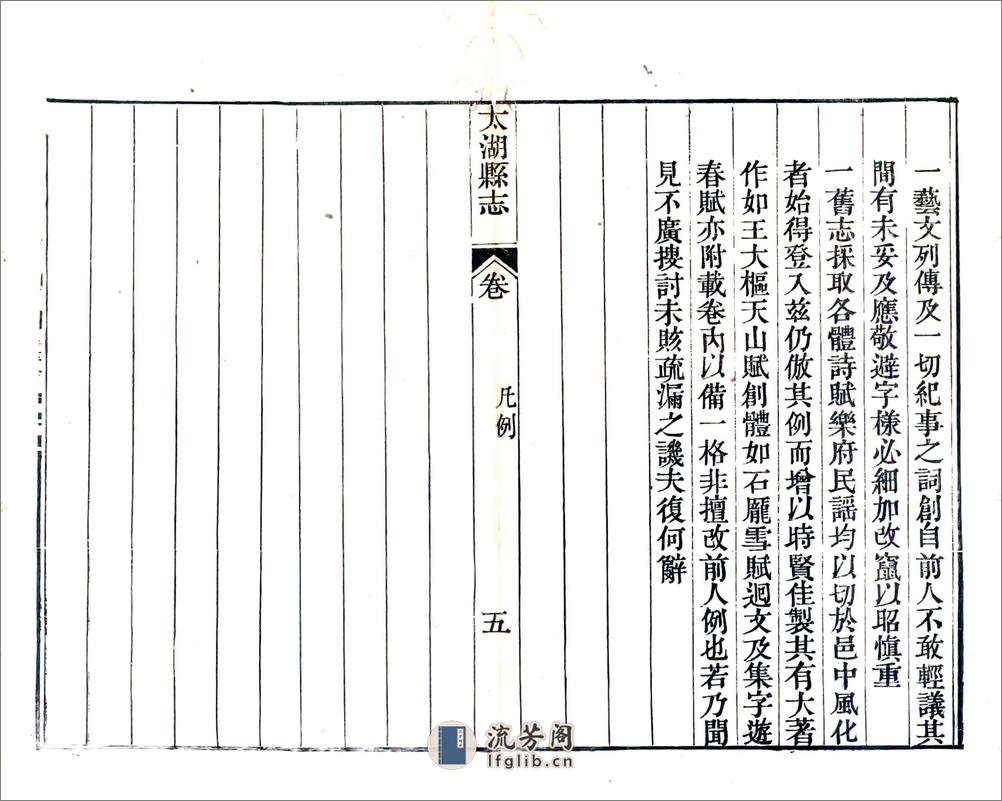 一藝文列傳及一切紀事之詞創自前人不敢輕議其
間有未妥及應敬避字樣必細加改竄以昭慎重
一舊志採取各體詩賦樂府民謡均以切於邑中風化
者始得登入兹仍倣其例而增以時賢佳製其有大著
作如王大樞天山賦創體如石龎雪賦迴文及集字遊
春賦亦附載卷內以備一格非擅改前人例也若乃聞
見不廣搜討未賅疏漏之譏夫復何辭
太湖縣志
卷
凡例
五
流芳阁
lfglib.cn